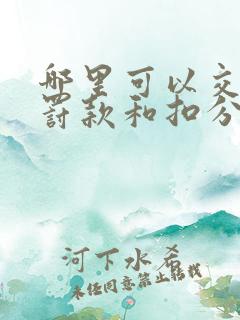 哪里可以交
罚款和扣分
河下水希
未经同意禁止搬我